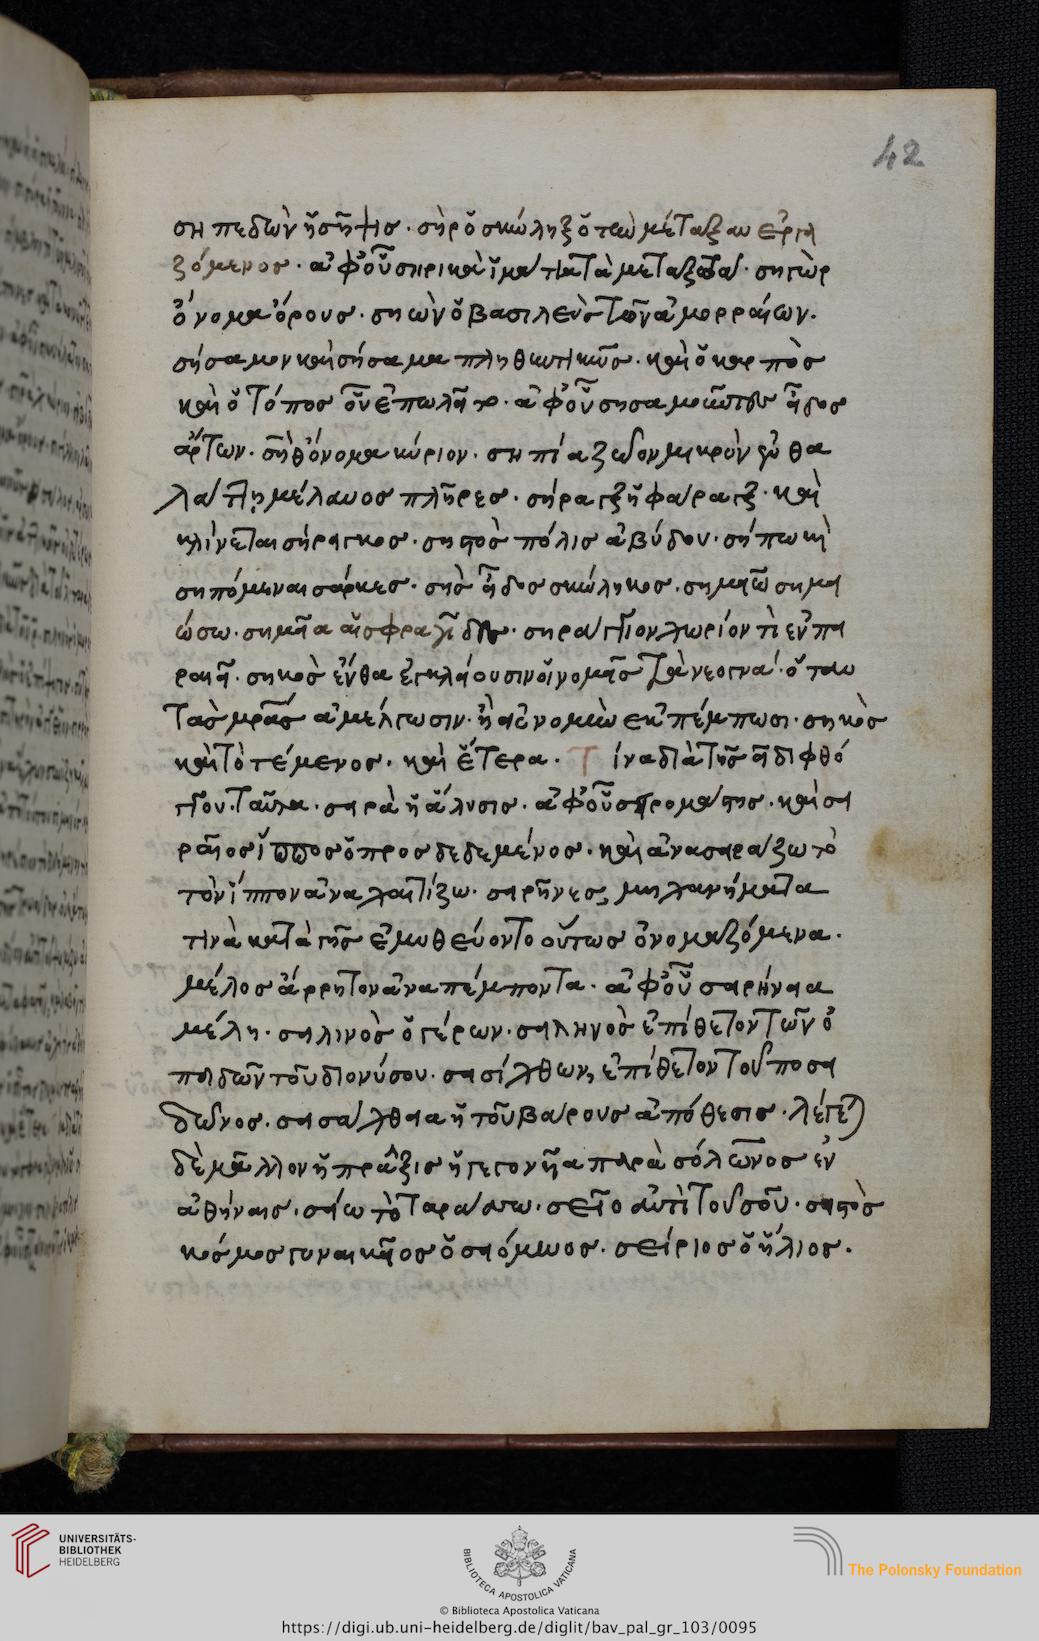 42
σηπεδὼν ἡ σῆψις · σὴρ ὁ σκώληξ ὁ τὴν μέταξαν ἐργα
ζόμενος · ἀφ' οὗ σηρικὰ ἱμάτια τὰ μεταξωτά · σηγὼρ
ὄνομα ὄρους · σηὼν ὁ βασιλεὺς τῶν ἀμορραίων.
σήσαμον καὶ σήσαμα πληθυντικῶς · καὶ ὁ καρπὸς
καὶ ὁ τόπος οὗ ἐπωλεῖτο · ἀφ' οὗ σησαμοῦντος εἶδος
ἄρτων · σὴθ ὄνομα κύριον · σηπία ζῶον μικρὸν ἐν θα
λάττῃ μέλανος πλῆρες · σήραγξ ἡ φάραγξ · καὶ
κλίνεται σήραγγος · σηστὸς πόλις ἀβύδου · σήπω καὶ
σηπόμεναι σάρκες · σὴς εἶδος σκώληκος · σημαιῶ σημει
ώσω · σημεῖα αἱ σφραγῖδες · σηράγγιον χωρίον τι ἐν πει
ραιεῖ · σηκὸς ἔνθα ἐγκλείουσιν οἱ νομεῖς τὰ νεογνά · ὅταν
τὰς μρας ἀμέλγωσιν · ἢ εἰς νομὴν ἐκπέμπωσι · σηκὸς
καὶ τὸ τέμενος · καὶ ἕτερα · Τίνα διὰ τῆς ει διφθό
γγου · ταῦτα · σειρὰ ἡ ἅλυσις · ἀφ' οὗ σειρομάστης · καὶ σει
ραῖος ἵππος ὁ προσδεδεμένος · καὶ ἀνασειράζω τὸ
τὸν ἵππον ἀναχαιτίζω · σειρῆνες μηχανήματα
τινὰ κατὰ γῆς ἐμυθεύοντο οὕτως ὀνομαζόμενα ·
μέλος ἄρρητον ἀναπέμποντα · ἀφ' οὗ σειρήνεια
μέλη · σειλινὸς ὁ γέρων · σειληνὸς ἐπίθετον τῶν ὀ
παδῶν τοῦ διονύσου · σεισίχθων, ἐπίθετον τοῦ ποσει
δῶνος · σεισάχθεια ἡ τοῦ βάρους ἀπόθεσις · λέγεται
δὲ μᾶλλον ἡ πρᾶξις ἡ γεγονυῖα παρὰ σόλωνος ἐν
ἀθήναις · σείω τὸ ταράσσω · σεῖο ἀντὶ τοῦ σοῦ · σειστὸς
κόσμος γυναικεῖος ὁ σειόμενος · σείριος ὁ ἥλιος ·
UNIVERSITÄTS-
BIBLIOTHEK
HEIDELBERG
BIBLIOTECA APOSTOLICA VATICANA
The Polonsky Foundation
© Biblioteca Apostolica Vaticana
https://digi.ub.uni-heidelberg.de/diglit/bav_pal_gr_103/0095